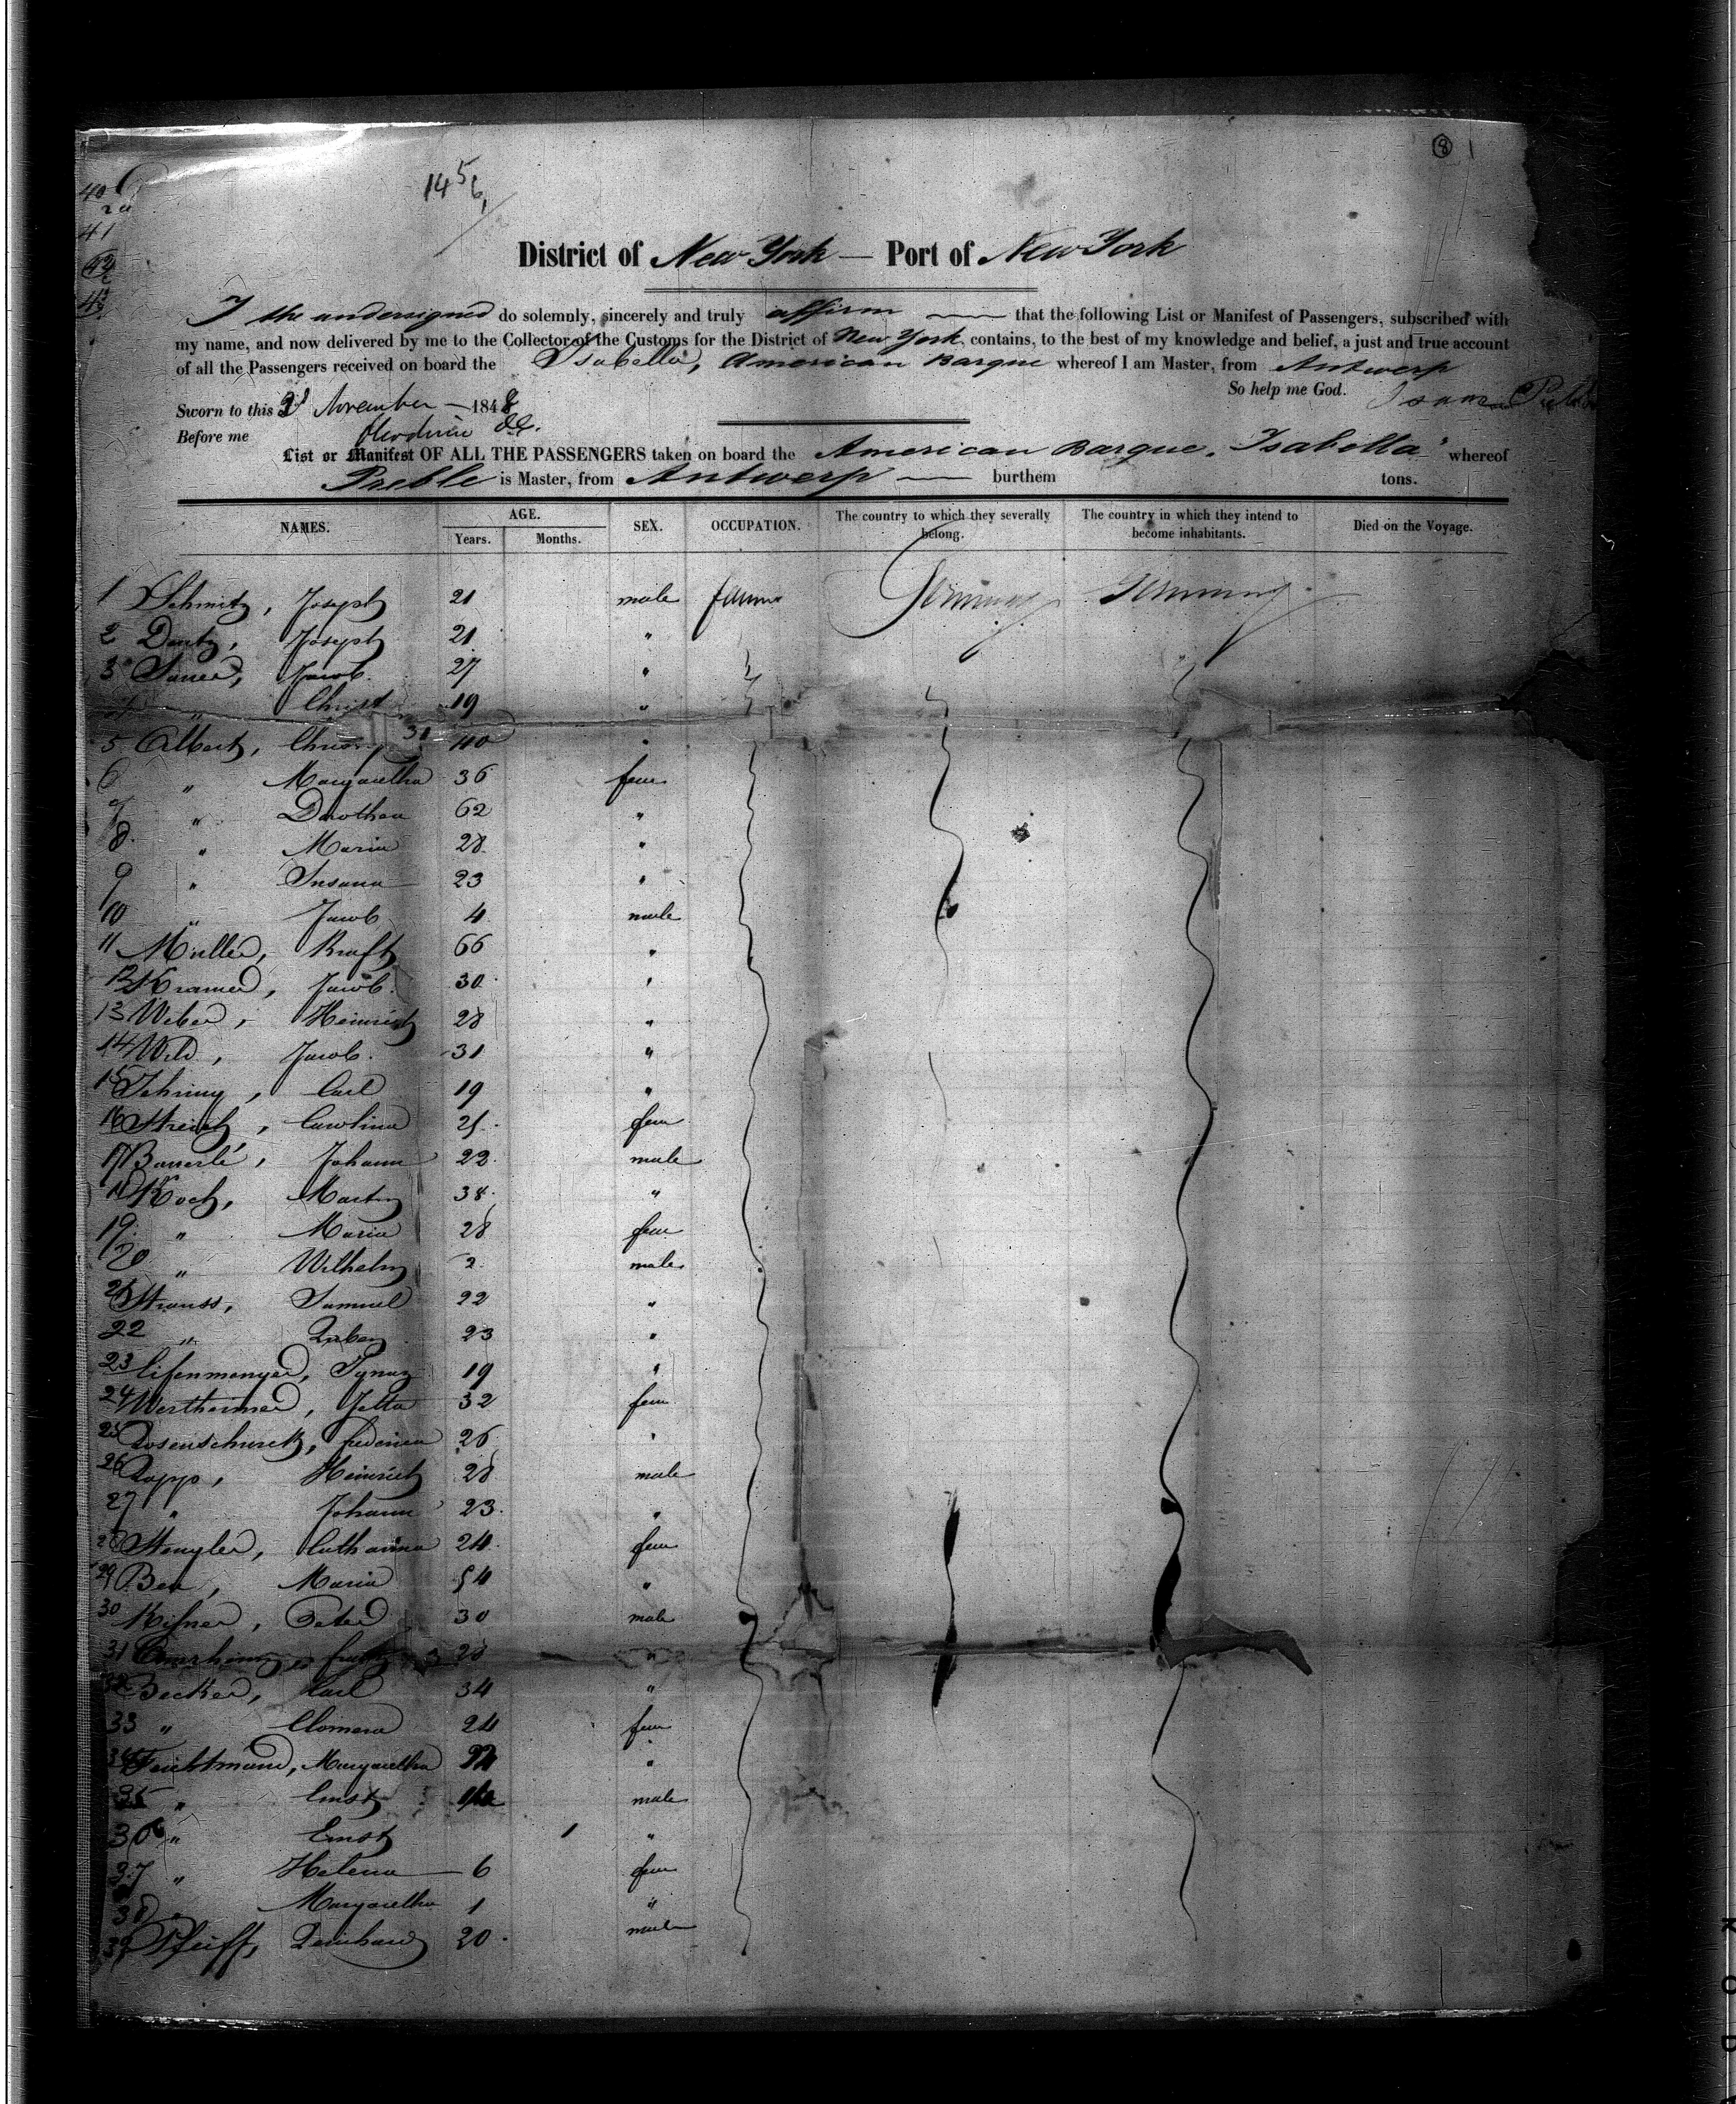 8
1456
40
41
42
43
District of New York — Port of New York
I the undersigned do solemnly, sincerely and truly affirm that the following List or Manifest of Passengers, subscribed with
my name, and now delivered by me to the Collector of the Customs for the District of New York, contains, to the best of my knowledge and belief, a just and true account
of all the Passengers received on board the Isabella, American Barque whereof I am Master, from Antwerp
So help me God. Isaac
Sworn to this November 1848
Before me
List or Manifest OF ALL THE PASSENGERS taken on board the American Barque "Isabella" whereof
Preble is Master, from Antwerp — burthem tons.
NAMES. AGE. Years. Months. SEX. OCCUPATION. The country to which they severally belong. The country in which they intend to become inhabitants. Died on the Voyage.
1 Schmitz, Joseph 21 male farmer Germany Germany
2 Joseph 21 "
3 Jacob. 27 "
4 " Christ 19 "
5 Albert, 40 "
6 " Margaretha 36 fem
7 " Dorothea 62 "
8 " Maria 28 "
9 " Susana 23 "
10 " Jacob 4 male
11 Müller, Kraft 66 "
12 Kramer, Jacob 30 "
13 Weber, Heinrich 28 "
14 Wild, Jacob. 31 "
15 Carl 19 "
16 Carolina fem
17 Bauerlé, Johann 22 male
18 Koch, Martin 38 "
19 " Maria 28 fem
20 " Wilhelm 2 male
21 Strauss, Samuel 22 "
22 " 23 "
23 Ignaz 19 "
24 Wertheimer, Jetta 32 fem
25 26 "
26 Rapp, Heinrich 28 male
27 " Johann 23 "
28 Stengler, Catharina 24 fem
29 Maria 54 "
30 Peter 30 male
31 28 "
32 Becker, Carl 34 "
33 " 24 fem
34 Margaretha "
35 " Ernst male
36 " Ernst 1 "
37 " Helena 6 fem
38 " Margaretha 1 "
39 Pfeiff, Reinhard 20 male